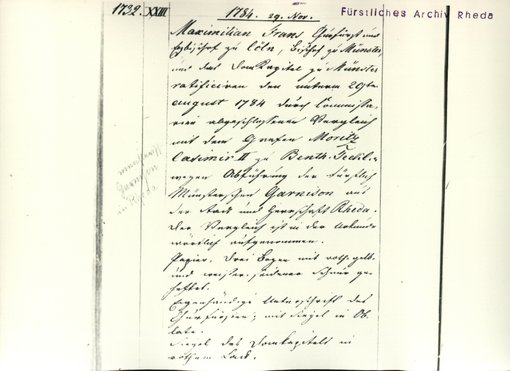 1732. XXIII 1784. 29. Nov. Fürstliches Archiv Rheda
Maximilian Franz Churfürst und
Erzbischof zu Cöln, Bischof zu Münster,
und das Domkapitel zu Münster
ratificiren den unterm 29ten
august 1784 durch Commissa-
rien abgeschlossenen Vergleich
mit dem Grafen Moritz
Casimir II zu Benth. Teckl.
wegen Abführung der Fürstlich
Münsterschen Garnison aus
der Stadt und Herrschaft Rheda.
Der Vergleich ist in der Urkunde
wörtlich aufgenommen.
Papier. Drei Bogen mit roth, gelb
und weißer seidener Schnur ge-
heftet.
Eigenhändige Unterschrift des
Churfürsten; mit Siegel in Ob-
late.
Siegel des Domkapitels in
rothem Lack.
Garnison
in Rheda